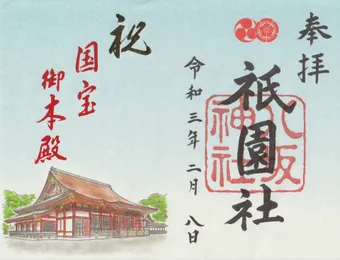 奉拝
八坂神社
祇園社
令和三年二月八日
祝
国宝
御本殿